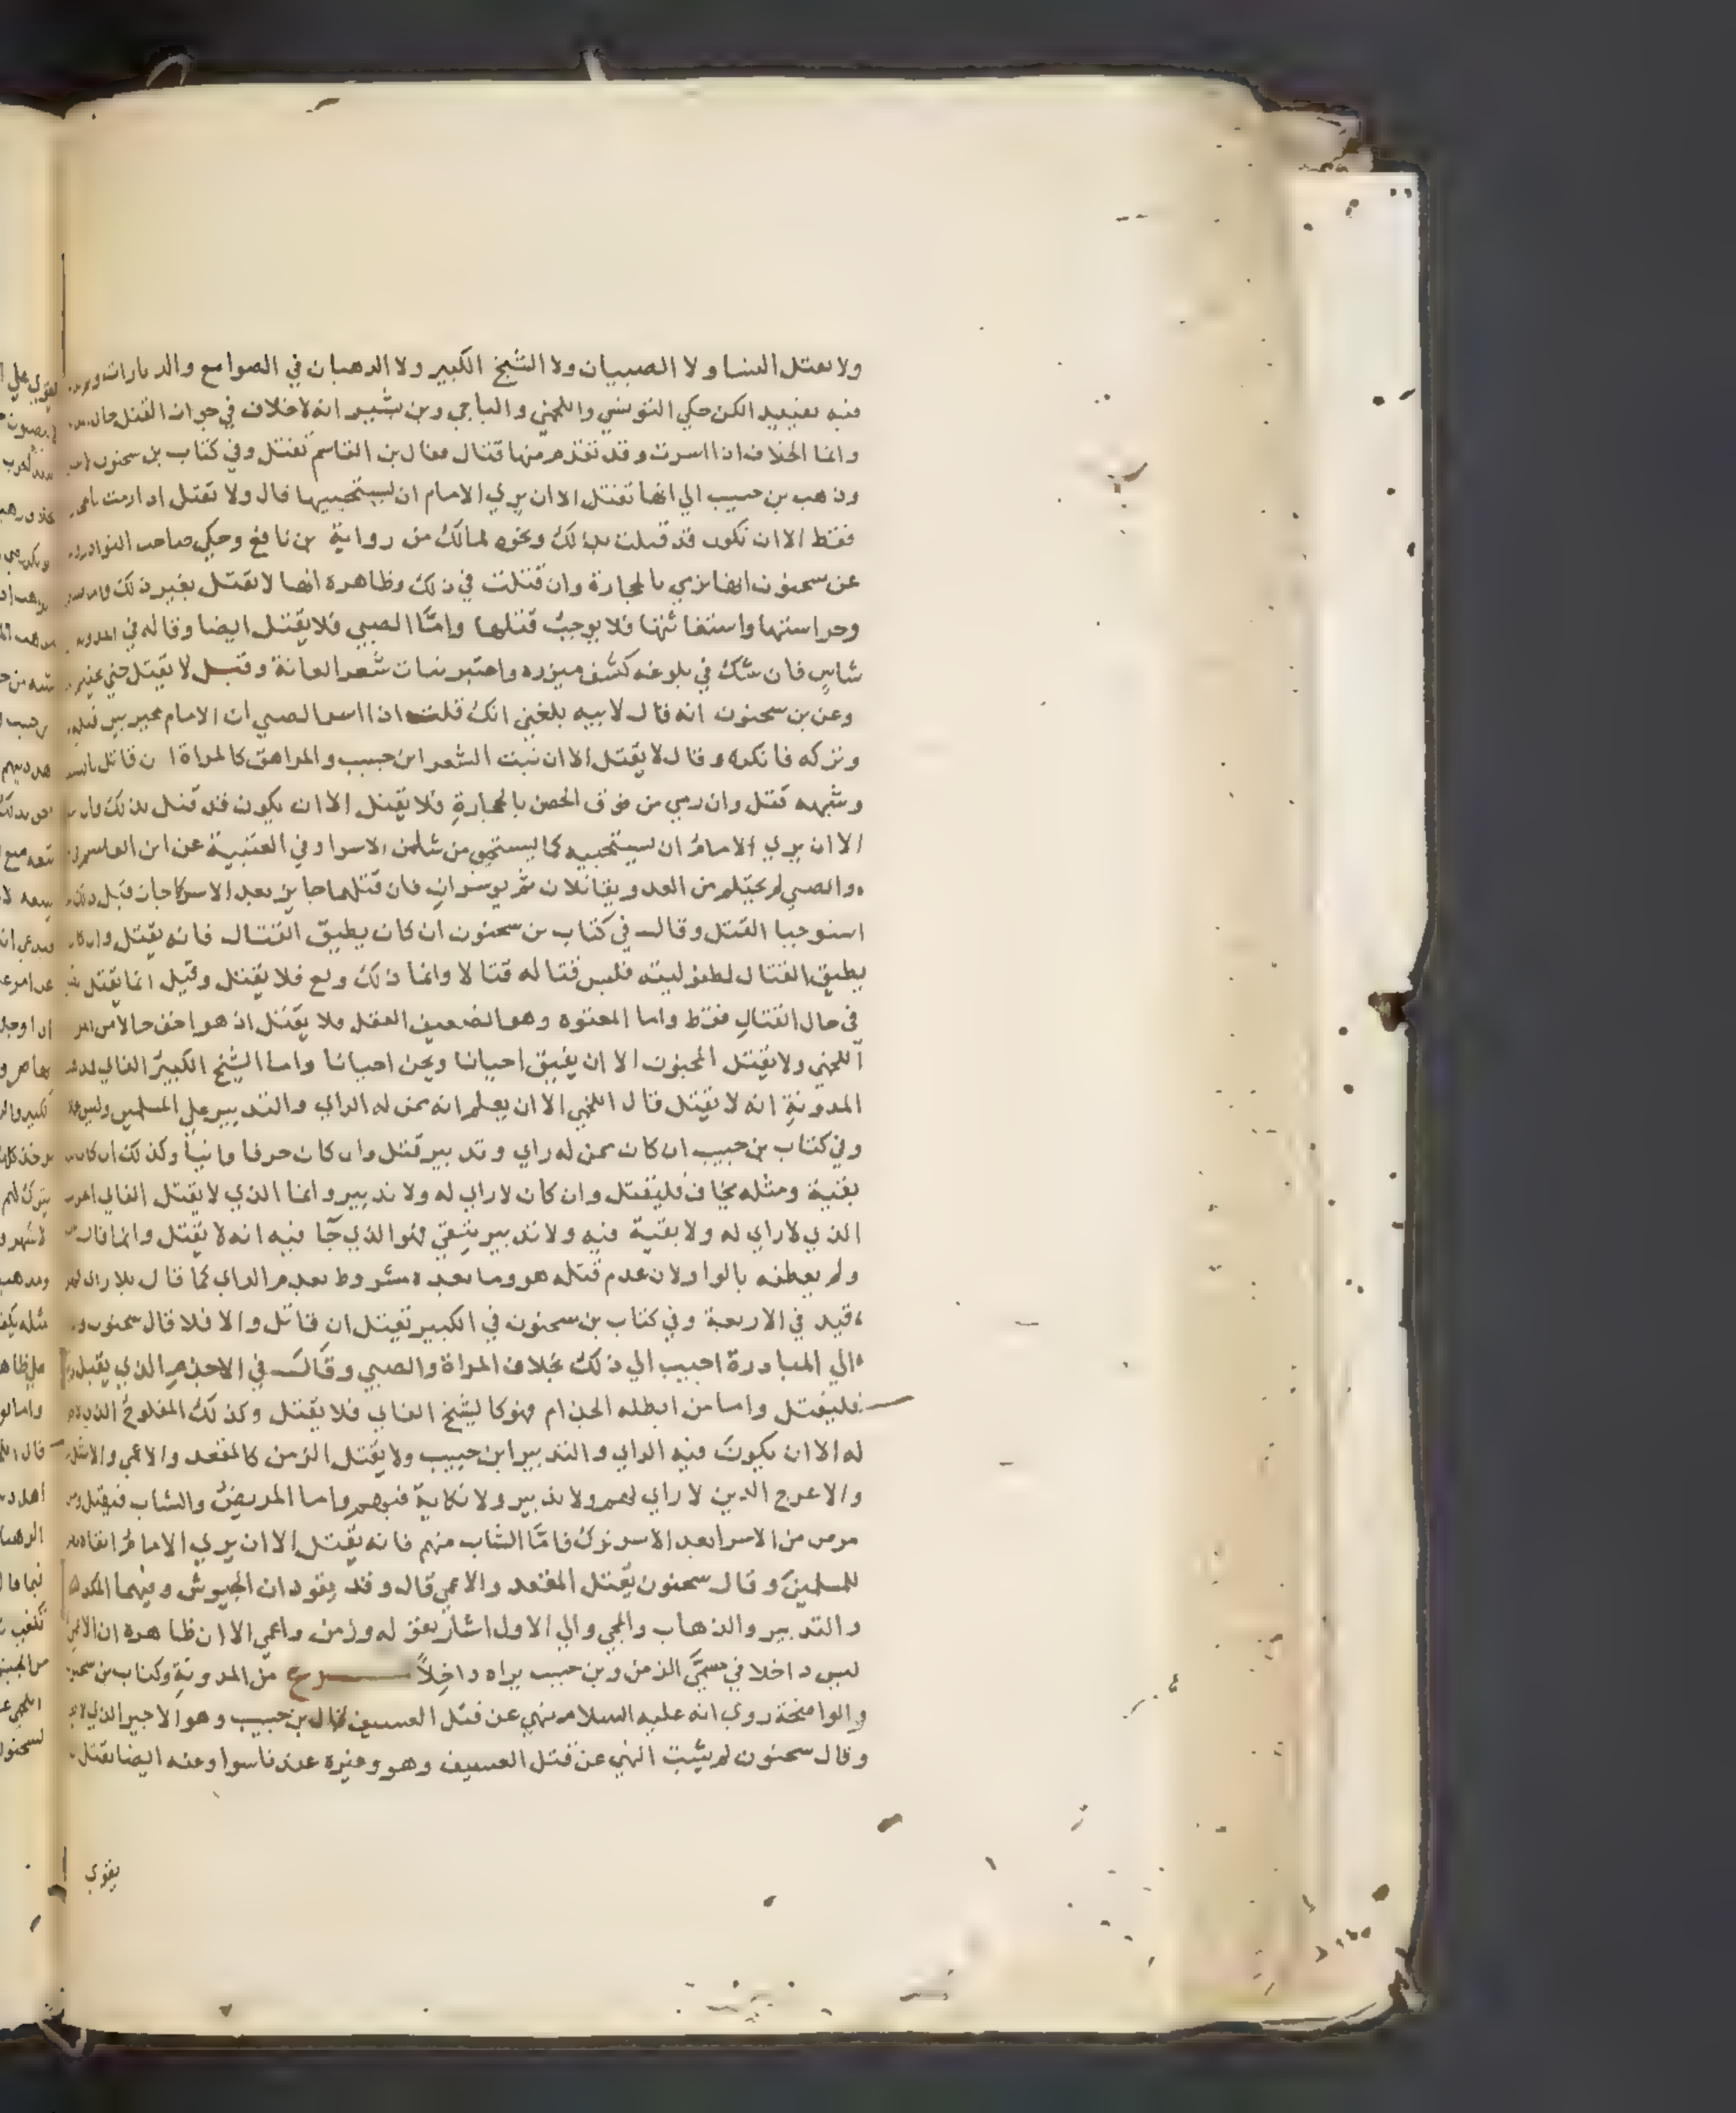 ولا يقتل النسا ولا الصبيان ولا الشيخ الكبير ولا الرهبان في الصوامع والديارات
فيه تقييد الكن حكي التونسي واللخمي والباجي وبن بشير انه لاخلاف في جواز القتل حال
وانما الخلاف اذا اسرت وقد تقدم منها قتال فقال بن القاسم تقتل وفي كتاب بن سحنون
وذهب بن حبيب الي انها تقتل الا ان يري الامام ان يستحييها قال ولا تقتل اذا رمت
فقط الا ان تكون قد قتلت بذلك ونحوه لمالك من رواية بن نافع وحكي صاحب النوادر
عن سحنون انها ترمي بالحجارة وان قتلت في ذلك وظاهره انها لا تقتل بغير ذلك
وحراستها واستغاثتها فلا يوجب قتلها وامّا الصبي فلا يقتل ايضا وقاله في المدونة
شاس فان شك في بلوغه كشف ميزره واعتبر نبات شعر العانة وقيل لا يقتل حتي
وعن بن سحنون انه قال لابيه بلغني انك قلت اذا اسر الصبي ان الامام مخير بين قتله
وتركه فانكره وقال لا يقتل الا ان نبت الشعر ابن حبيب والمراهق كالمراة ان قاتل
وشبهه قتل وان رمي من فوق الحصن بالحجارة فلا يقتل الا ان يكون قد قتل بذلك
الا ان يري الامام ان يستحييه كما يستحيي من شا من الاسرا وفي العتبية عن ابن القاسم
والصبي لم يحتلم من العدو يقاتلان ثم يوسران فان قتلهما جايز بعد الاسر كما جاز قبل ذلك
استوجبا القتل وقال في كتاب بن سحنون ان كان يطيق القتال فانه يقتل وان كان
يطيق القتال لطفوليته فليس قتاله قتالا وانما ذلك ولع فلا يقتل وقيل انما يقتل
في حال القتال فقط واما المعتوه وهو الضعيف العقل فلا يقتل اذ هو اخف حالا من
اللخمي ولا يقتل المجنون الا ان يفيق احيانا ويجن احيانا واما الشيخ الكبير الفاني
المدونة انه لا يقتل قال اللخمي الا ان يعلم انه ممن له الراي والتدبير علي المسلمين
وفي كتاب بن حبيب ان كان ممن له راي وتدبير قتل وان كان خرفا فانيا وكذلك ان كان
بقية ومثله يخاف فليقتل وان كان لا راي له ولا تدبير وانما الذي لا يقتل الفاني
الذي لا راي له ولا بقية فيه ولا تدبير يتقي فهو الذي جآ فيه انه لا يقتل وانما قال
ولم يعطفه بالواو لان عدم قتله هو وما بعده مشروط بعدم الراي كما قال بلا راي
قيد في الاربعة وفي كتاب بن سحنون في الكبير يقتل ان قاتل والا فلا قال سحنون
الي المبادرة احبب الي ذلك بخلاف المراة والصبي وقال في الاجذم الذي يقبل
فليقتل واما من ابطله الجذام فهو كالشيخ الفاني فلا يقتل وكذلك المفلوج الذي
له الا ان يكون فيه الراي والتدبير ابن حبيب ولا يقتل الزمن كالمقعد والاعمي والاشل
والاعرج الذين لا راي لهم ولا تدبير ولا نكاية فيهم واما المريض والشاب فيقتل
مرض من الاسرا بعد الاسر ترك فامّا الشاب منهم فانه يقتل الا ان يري الامام
للمسلمين وقال سحنون يقتل المقعد والاعمي قال وقد يقودان الجيوش وفيهما
والتدبير والذهاب والمجي والي الاول اشار بقوله وزمن واعمي الا ان ظاهره ان الاعمي
ليس داخلا في مسمّي الزمن وبن حبيب يراه داخلاً فرع من المدونة وكتاب بن سحنون
والواضحة روي انه عليه السلام نهي عن قتل العسيف قال بن حبيب وهو الاجير
وقال سحنون لم يثبت النهي عن قتل العسيف وهو وغيره عندنا سوا وعنه ايضا يقتل
يقوي